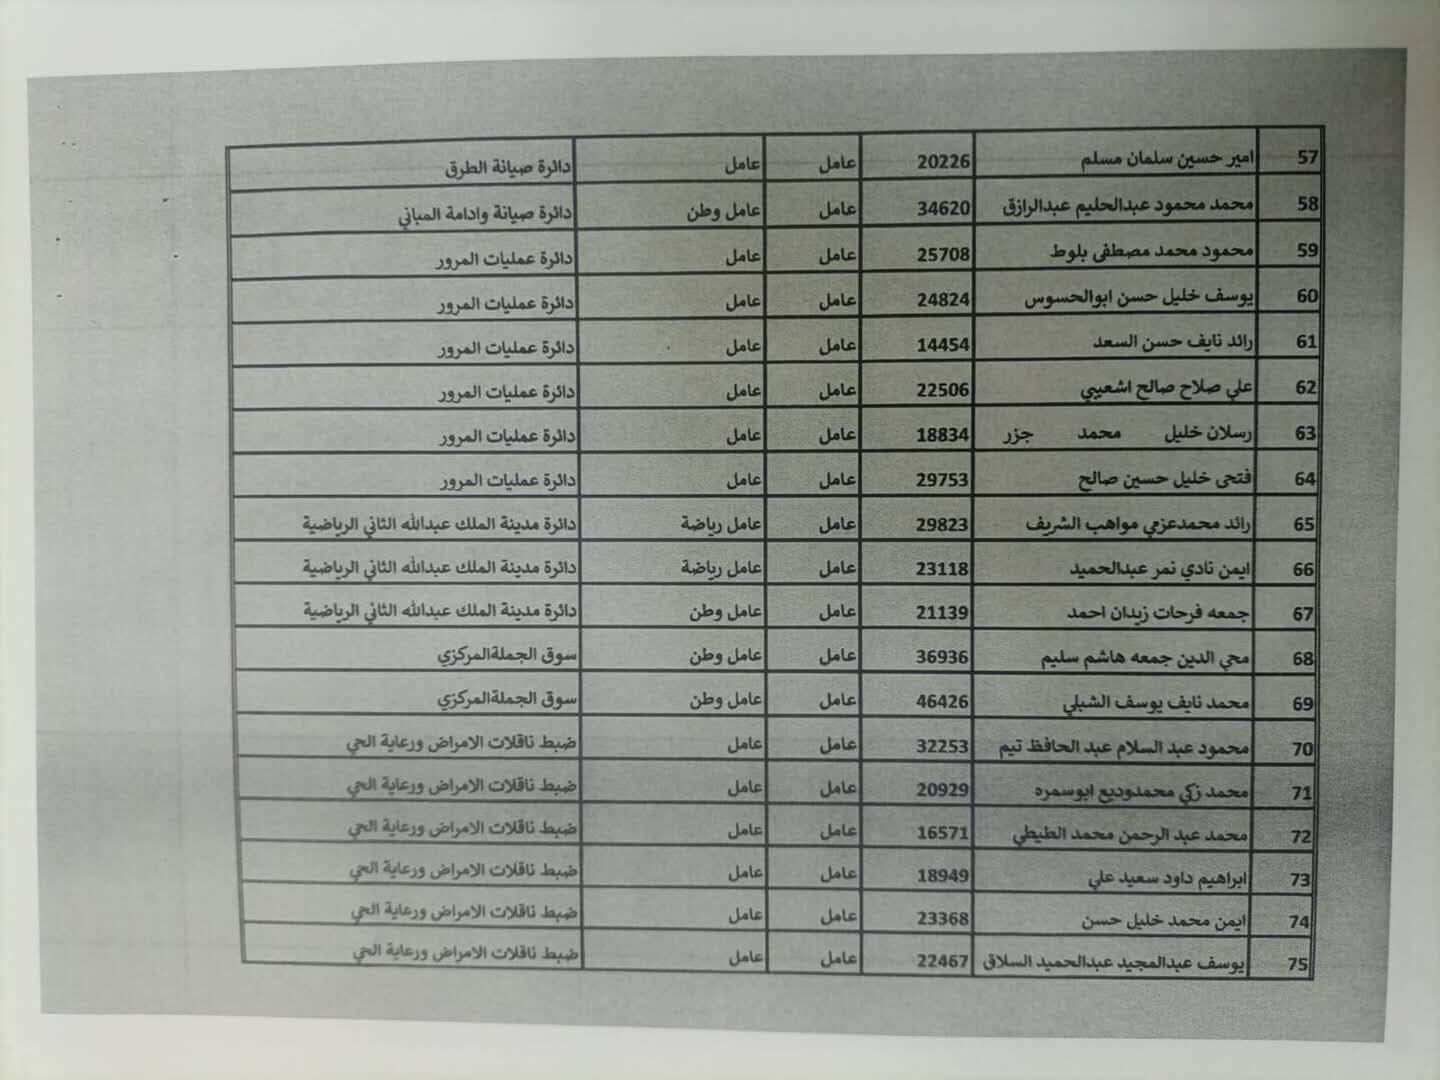 57 امير حسين سلمان مسلم 20226 عامل عامل دائرة صيانة الطرق
58 محمد محمود عبدالحليم عبدالرازق 34620 عامل عامل وطن دائرة صيانة وادامة المباني
59 محمود محمد مصطفى بلوط 25708 عامل عامل دائرة عمليات المرور
60 يوسف خليل حسن ابوالحسوس 24824 عامل عامل دائرة عمليات المرور
61 رائد نايف حسن السعد 14454 عامل عامل دائرة عمليات المرور
62 علي صلاح صالح اشعيبي 22506 عامل عامل دائرة عمليات المرور
63 رسلان خليل محمد جزر 18834 عامل عامل دائرة عمليات المرور
64 فتحى خليل حسين صالح 29753 عامل عامل دائرة عمليات المرور
65 رائد محمدعزمي مواهب الشريف 29823 عامل عامل رياضة دائرة مدينة الملك عبدالله الثاني الرياضية
66 ايمن نادي نمر عبدالحميد 23118 عامل عامل رياضة دائرة مدينة الملك عبدالله الثاني الرياضية
67 جمعه فرحات زيدان احمد 21139 عامل عامل وطن دائرة مدينة الملك عبدالله الثاني الرياضية
68 محي الدين جمعه هاشم سليم 36936 عامل عامل وطن سوق الجملةالمركزي
69 محمد نايف يوسف الشبلي 46426 عامل عامل وطن سوق الجملةالمركزي
70 محمود عبد السلام عبد الحافظ تيم 32253 عامل عامل ضبط ناقلات الامراض ورعاية الحي
71 محمد زكي محمدوديع ابوسمره 20929 عامل عامل ضبط ناقلات الامراض ورعاية الحي
72 محمد عبد الرحمن محمد الطيطي 16571 عامل عامل ضبط ناقلات الامراض ورعاية الحي
73 ابراهيم داود سعيد علي 18949 عامل عامل ضبط ناقلات الامراض ورعاية الحي
74 ايمن محمد خليل حسن 23368 عامل عامل ضبط ناقلات الامراض ورعاية الحي
75 يوسف عبدالمجيد عبدالحميد السلاق 22467 عامل عامل ضبط ناقلات الامراض ورعاية الحي